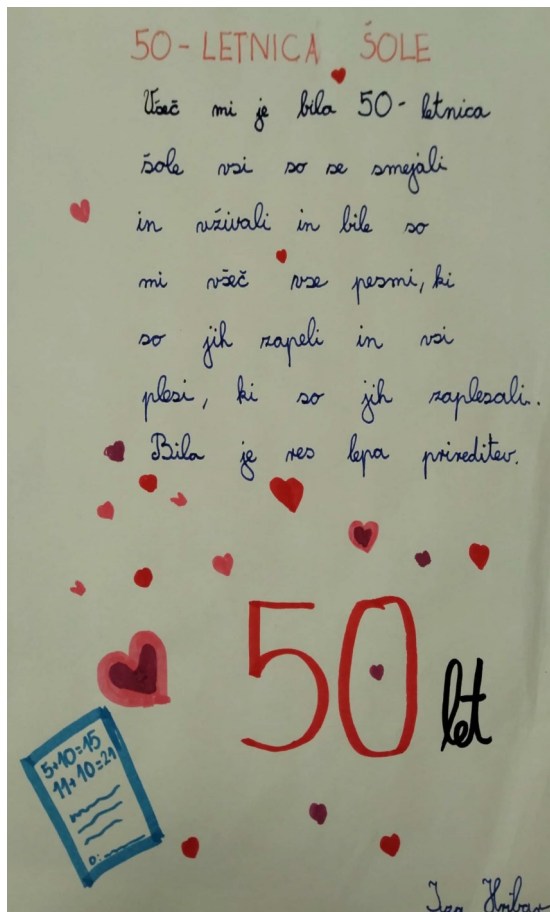 50-LETNICA ŠOLE
Všeč mi je bila 50-letnica
šole vsi so se smejali
in uživali in bile so
mi všeč vse pesmi, ki
so jih zapeli in vsi
plesi, ki so jih zaplesali.
Bila je res lepa prireditev.
50 let
5+10=15
11+10=21
O:
Hribar